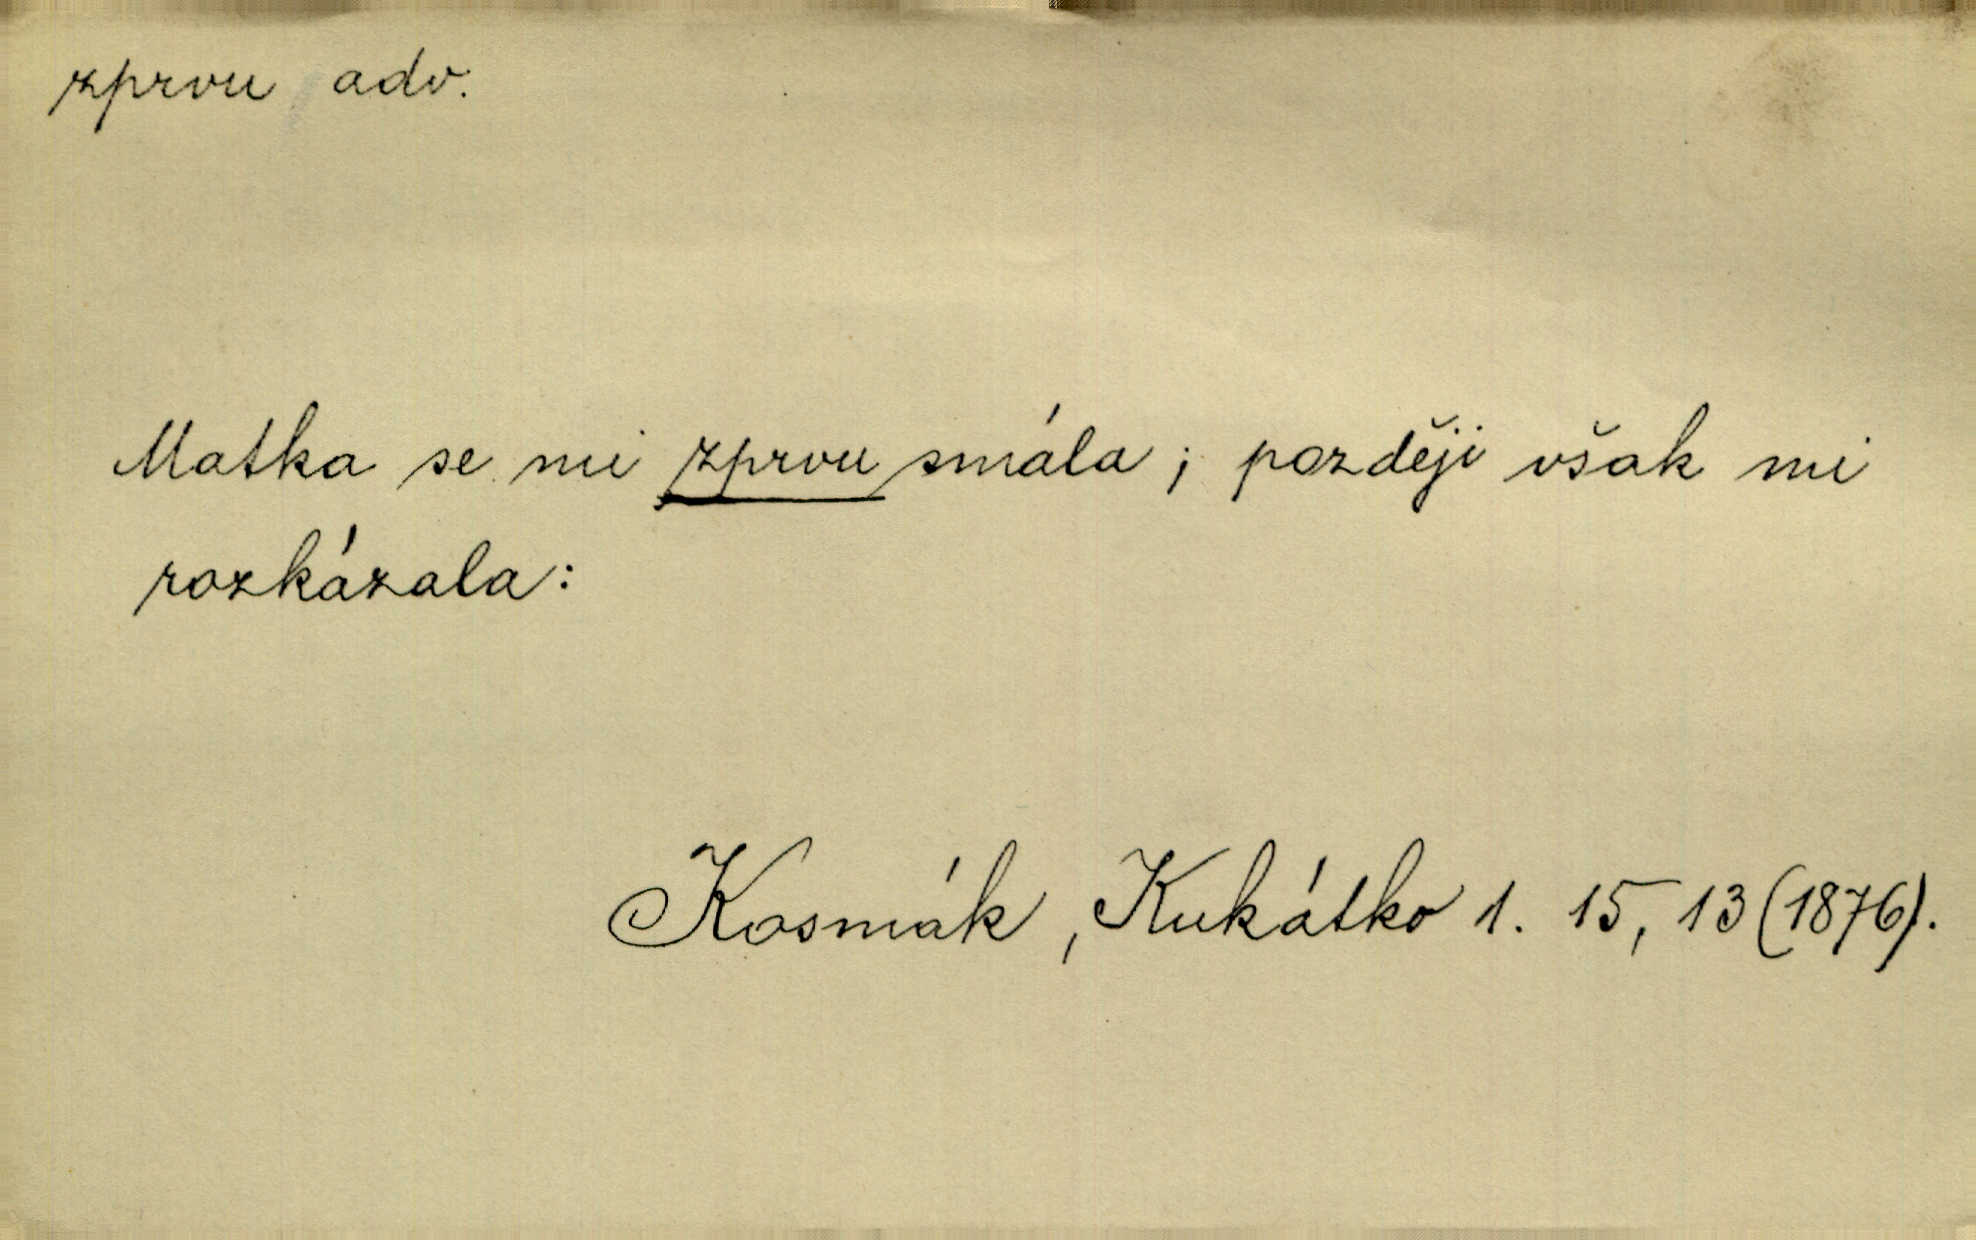 zprvu adv.
Matka se mi zprvu smála; později však mi
rozkázala:
Kosmák, Kukátko 1. 15, 13 (1876).